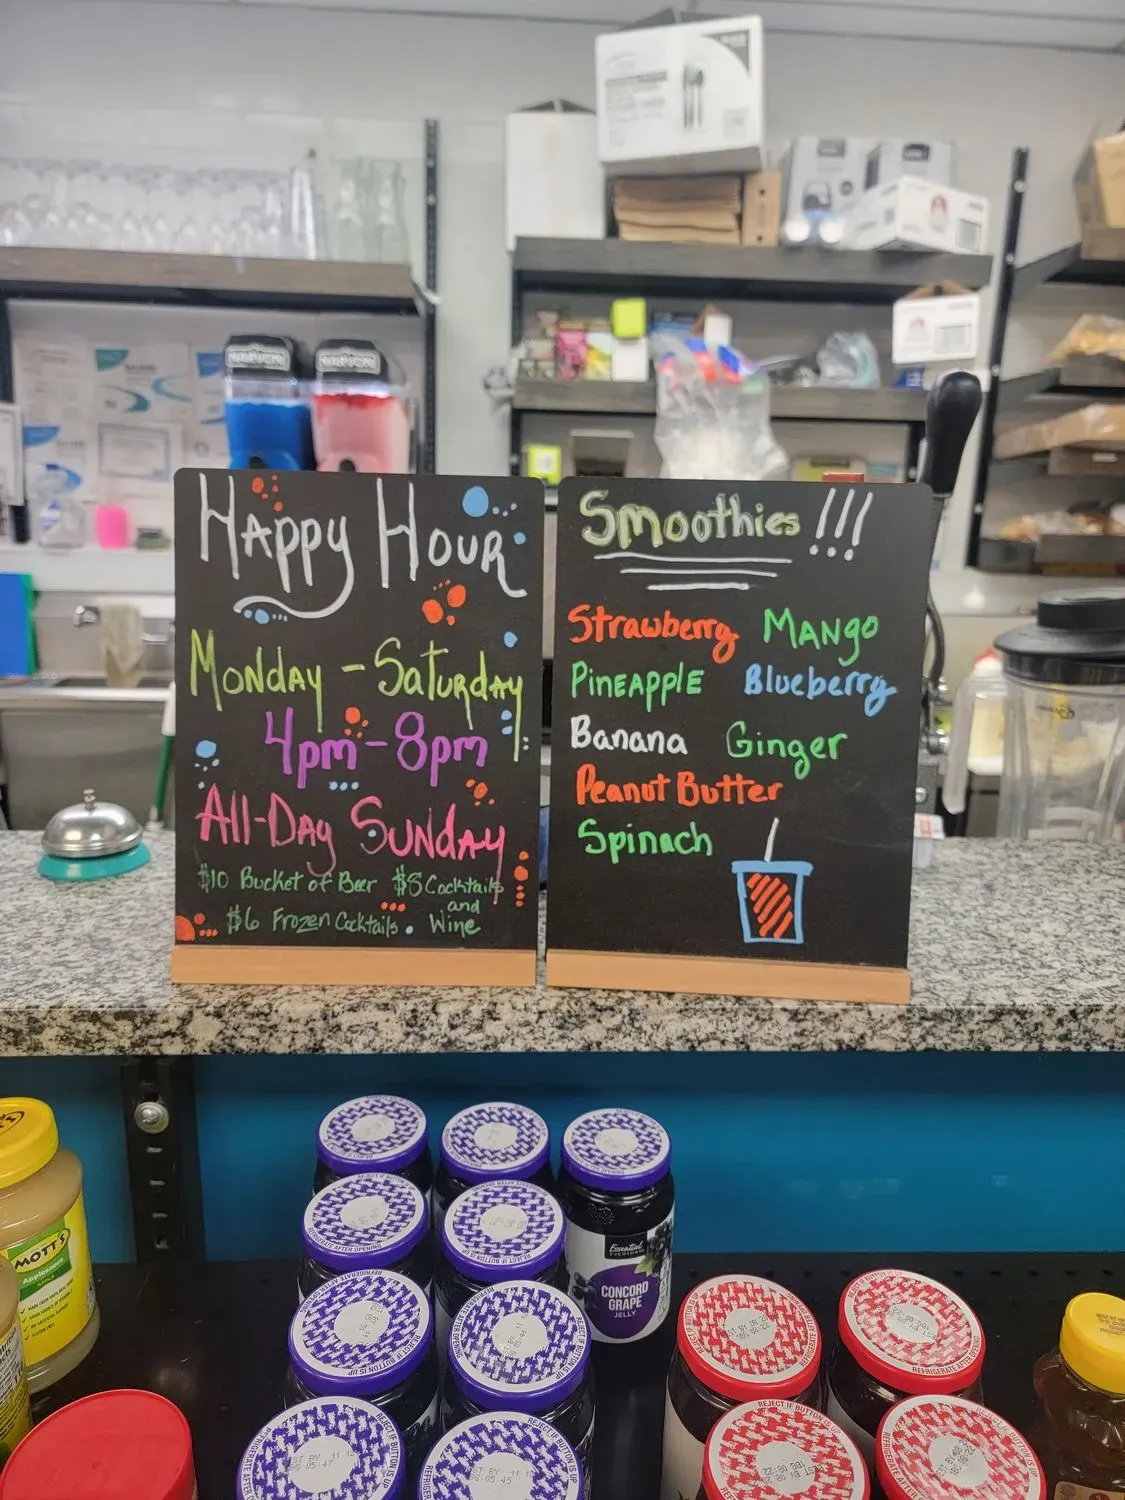 Happy Hour
Monday - Saturday
4pm - 8pm
All-Day Sunday
$10 Bucket of Beer $5 Cocktails
and
$6 Frozen Cocktails. Wine
Smoothies!!!
Strawberry Mango
Pineapple Blueberry
Banana Ginger
Peanut Butter
Spinach
MOTT'S
Applesauce
APPLE
Essential
EVERYDAY
CONCORD
GRAPE
JELLY
REJECT IF BUTTON IS UP
REFRIGERATE AFTER OPENING